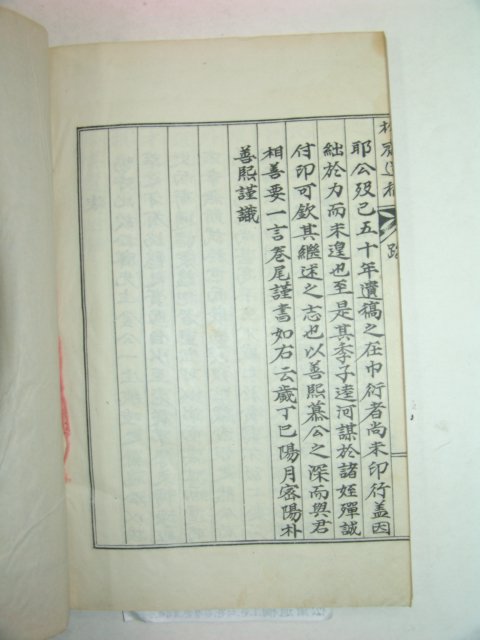 耶公歿已五十年遺稿之在巾衍者尚未印行盖因
絀於力而未遑也至是其季子逵河謀於諸姪殫誠
付印可欽其繼述之志也以善熙慕公之深而與君
相善要一言卷尾謹書如右云歲丁巳陽月密陽朴
善熙謹識
跋